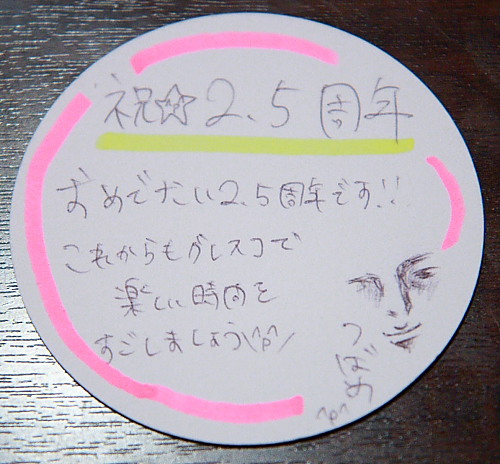 祝☆2.5周年
おめでたい2.5周年です!!
これからもグレスコで
楽しい時間を
すごしましょう\(^o^)/
つばめ